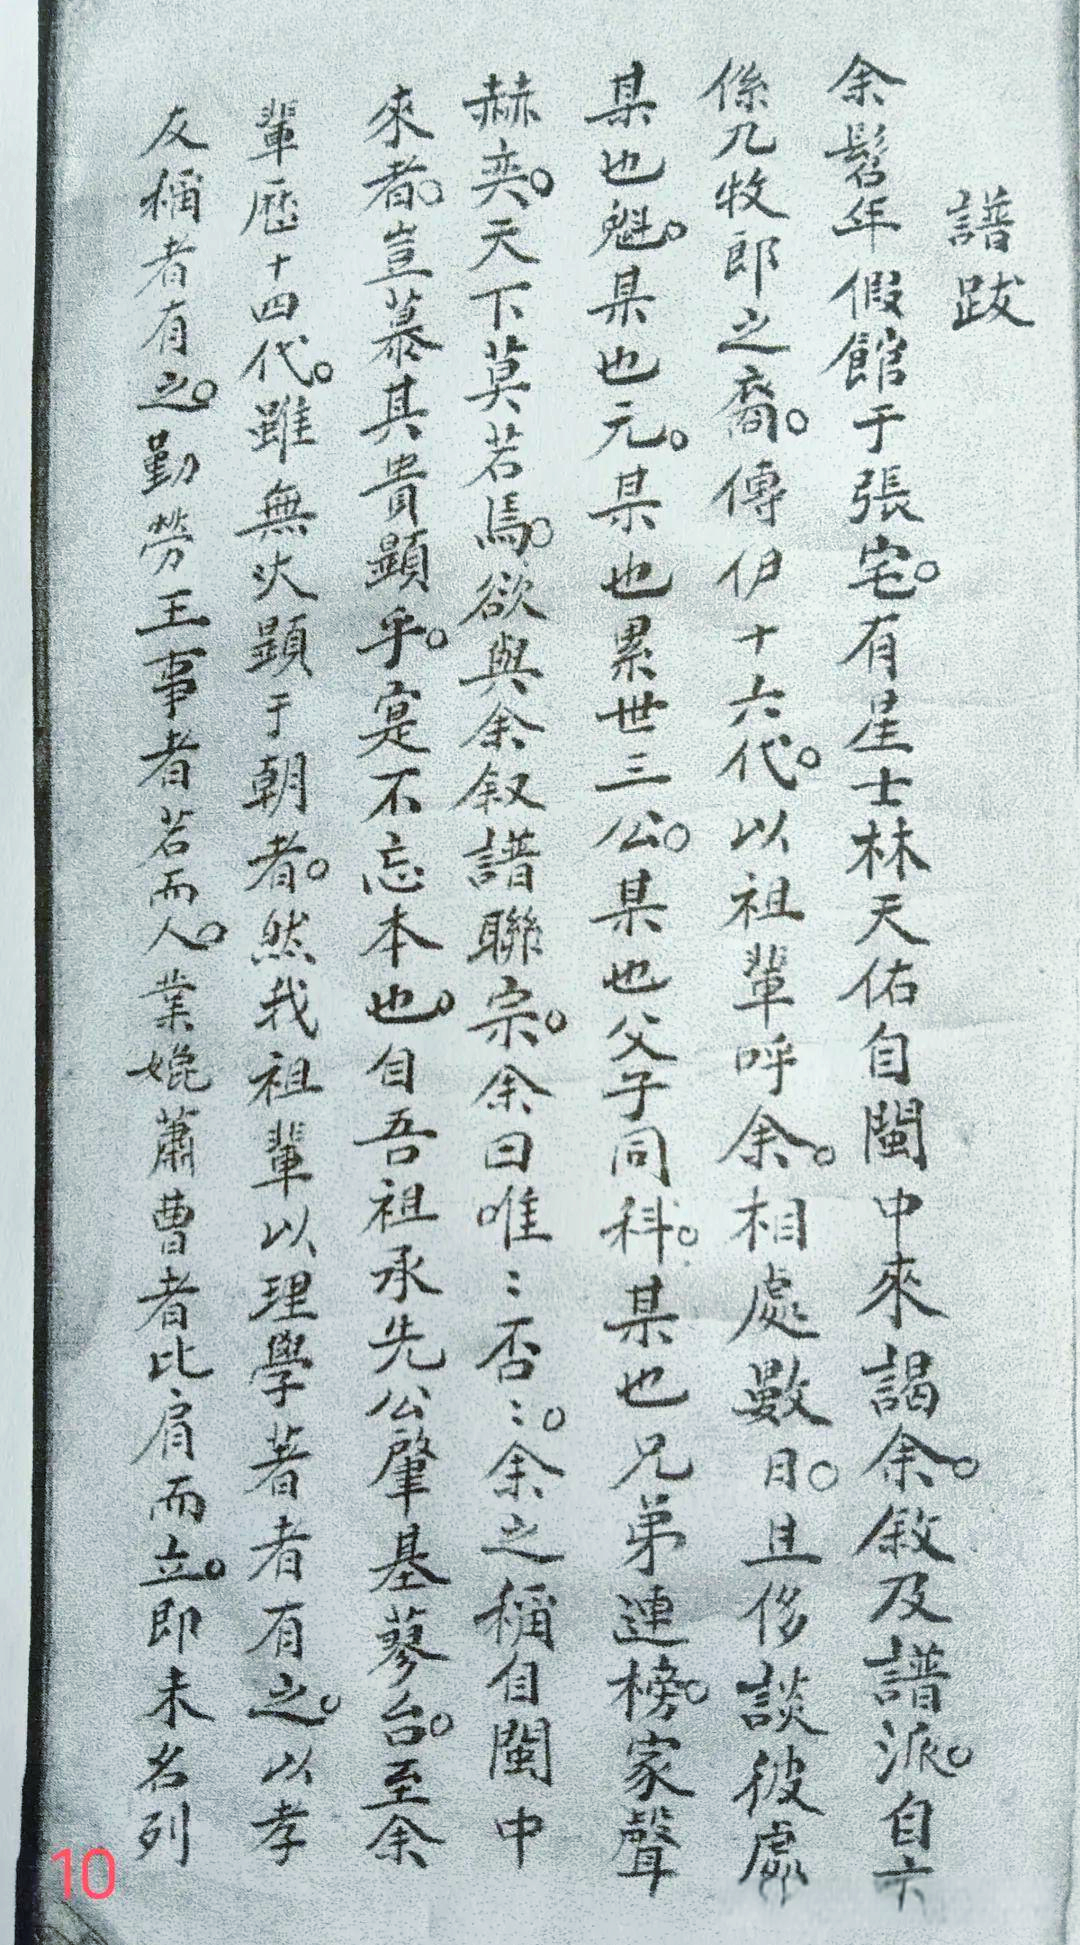 譜跋
余髫年假館于張宅。有星士林天佑自閩中來謁余。敘及譜派。自六
係九牧郎之裔。傳伊十六代。以祖輩呼余。相處數日。且侈談彼處
某也魁。某也元。某也累世三公。某也父子同科。某也兄弟連榜。家聲
赫奕。天下莫若焉。欲與余叙譜聯宗。余曰唯〻否〻。余之稱自閩中
來者。豈慕其貴顯乎。寔不忘本也。自吾祖承先公肇基蓼台。至余
輩歷十四代。雖無大顕于朝者。然我祖輩以理學著者有之。以孝
友稱者有之。勤勞王事者若而人。業媲蕭曹者比肩而立。即未名列
10